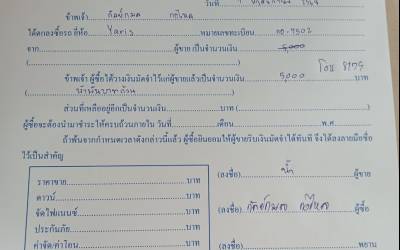 วันที่
ข้าพเจ้า
ได้ตกลงซื้อรถยี่ห้อ Yaris หมายเลขทะเบียน
จาก ผู้ขาย เป็นจำนวนเงิน 5,000
( )
ข้าพเจ้า ผู้ซื้อได้วางเงินมัดจำไว้แก่ผู้ขายแล้วเป็นจำนวนเงิน 5,000 บาท
(ห้าพันบาทถ้วน)
ส่วนที่เหลืออยู่อีกเป็นจำนวนเงิน บาท ( )
ผู้ซื้อจะต้องนำมาชำระให้ครบถ้วนภายใน วันที่ เดือน พ.ศ.
ถ้าพ้นจากกำหนดเวลาดังกล่าวนี้แล้ว ผู้ซื้อยินยอมให้ผู้ขายริบเงินมัดจำได้ทันที จึงได้ลงลายมือชื่อ
ไว้เป็นสำคัญ
ราคาขาย บาท
(ลงชื่อ) ผู้ขาย
ดาวน์ บาท
จัดไฟแนนซ์ บาท
(ลงชื่อ) ผู้ซื้อ
ประกันภัย บาท
ค่าจัด/ค่าโอน บาท
(ลงชื่อ) พยาน